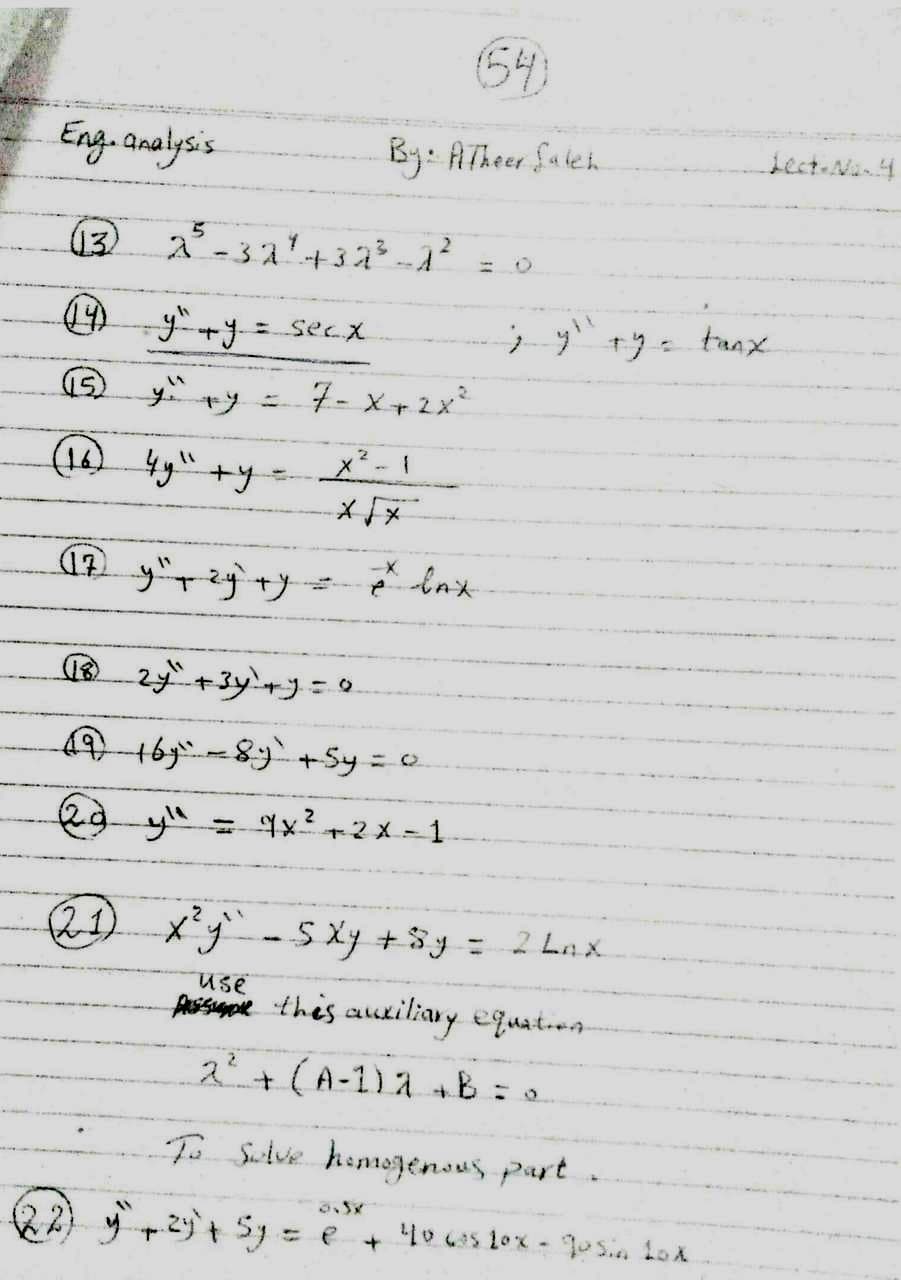 54
Eng. analysis By: ATheer Saleh Lect. No. 4
13 λ⁵ - 3λ⁴ + 3λ³ - λ² = 0
14 y'' + y = sec x ; y'' + y = tan x
15 y'' + y = 7 - x + 2x²
16 4y'' + y = x² - 1 / x√x
17 y'' + 2y' + y = e⁻ˣ lnx
18 2y'' + 3y' + y = 0
19 16y'' - 8y' + 5y = 0
20 y'' = 9x² + 2x - 1
21 x²y'' - 5xy + 8y = 2 Lnx
use this auxiliary equation
λ² + (A-1)λ + B = 0
To solve homogenous part.
22 y'' + 2y' + 5y = e^0.5x + 40 cos 10x - 90 sin 10x